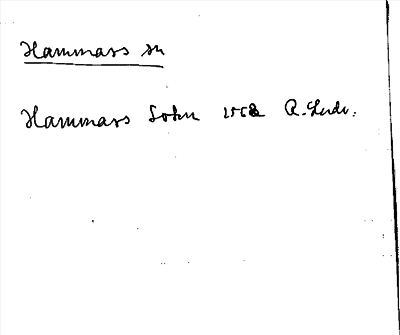 Hammars sn
Hammars Sohn 1562 R.Ludv.